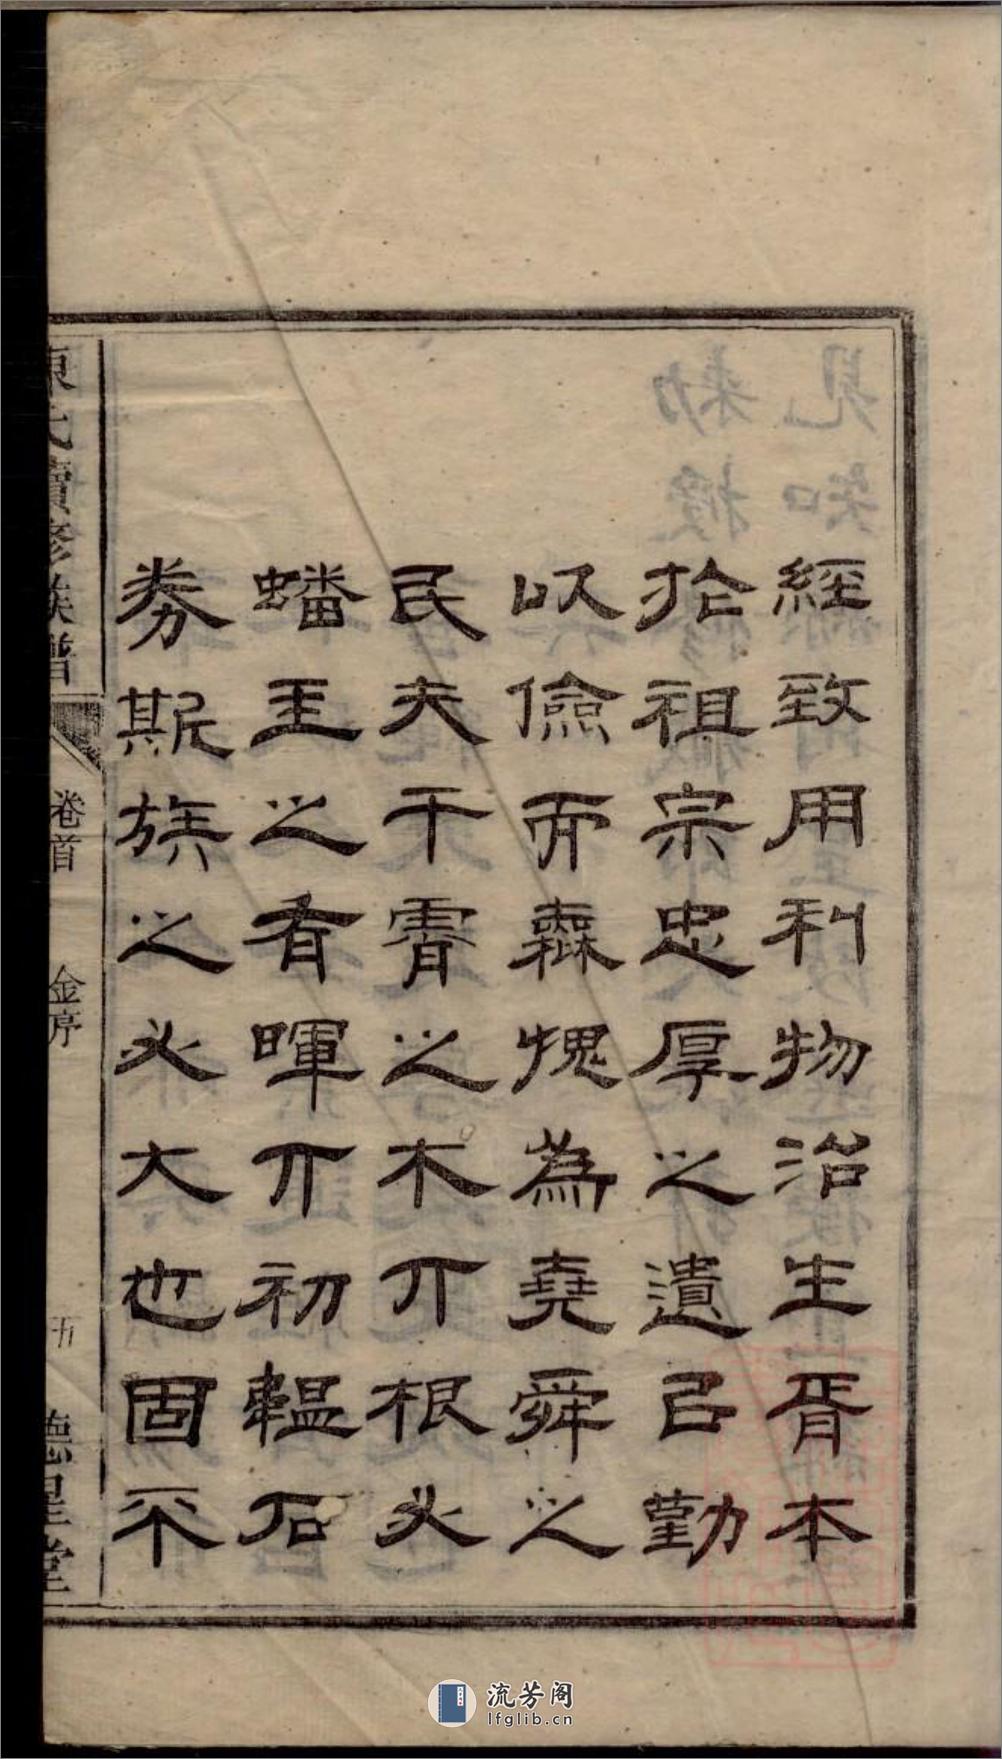 經致用利物治生胥本
於祖宗忠厚之遺己勤
以儉而森愧為堯舜之
民夫干霄之木丌根必
蟠玉之有暉丌初韞石
券斯族之必大也固不
氏續修族譜
卷首
金序
五
德星堂
流芳阁
lfglib.cn